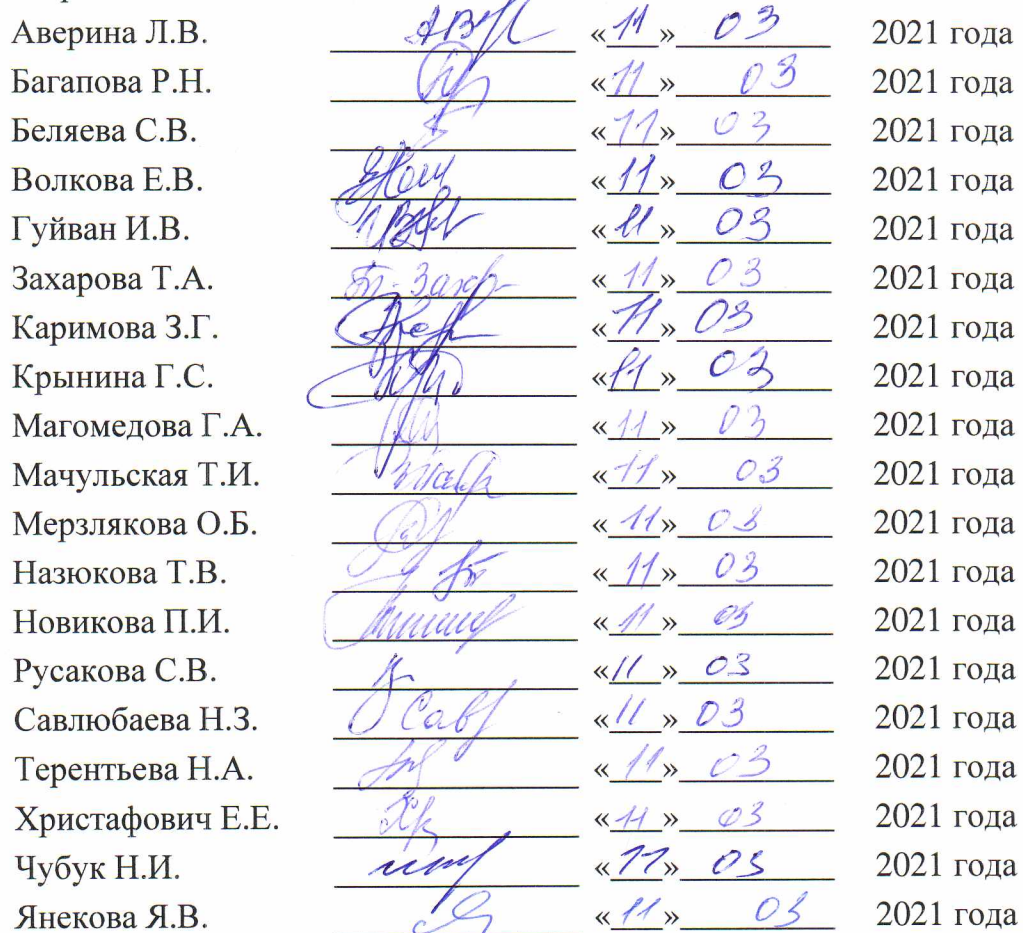 Аверина Л.В. «11» 03 2021 года
Багапова Р.Н. «11» 03 2021 года
Беляева С.В. «11» 03 2021 года
Волкова Е.В. «11» 03 2021 года
Гуйван И.В. «11» 03 2021 года
Захарова Т.А. «11» 03 2021 года
Каримова З.Г. «11» 03 2021 года
Крынина Г.С. «11» 03 2021 года
Магомедова Г.А. «11» 03 2021 года
Мачульская Т.И. «11» 03 2021 года
Мерзлякова О.Б. «11» 03 2021 года
Назюкова Т.В. «11» 03 2021 года
Новикова П.И. «11» 03 2021 года
Русакова С.В. «11» 03 2021 года
Савлюбаева Н.З. «11» 03 2021 года
Терентьева Н.А. «11» 03 2021 года
Христафович Е.Е. «11» 03 2021 года
Чубук Н.И. «11» 03 2021 года
Янекова Я.В. «11» 03 2021 года